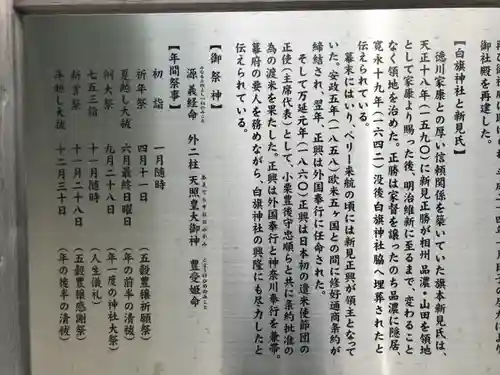 御社殿を再建した。
【白旗神社と新見氏】
徳川家康との厚い信頼関係を築いていた旗本新見氏は、
天正十八年(一五九〇)に新見正勝が相州 品濃・山田を領地
として家康より賜った後、明治維新に至るまで、変わること
なく領地を治めた。正勝は家督を譲ったのち品濃に隠居、
寛永十九年(一六四二)没後白旗神社脇へ埋葬されたと
伝えられている。
幕末にはいり、ペリー来航の頃には新見正興が領主となって
いた。安政五年(一八五八)欧米五ヶ国との間に修好通商条約が
締結され、翌年、正興は外国奉行に任命された。
そして万延元年(一八六〇)正興は日本初の遣米使節団の
正使(主席代表)として、小栗豊後守忠順らと共に条約批准の
為の渡米を果たした。正興は外国奉行と神奈川奉行を兼帯。
幕府の要人を務めながら、白旗神社の興隆にも尽力したと
伝えられている。
【御祭神】
源義経命 外二柱 天照皇大御神 豊受姫命
【年間祭事】
初詣 一月随時
祈年祭 四月十一日 (五穀豊穣祈願祭)
夏越し大祓 六月最終日曜日 (年の前半の清祓)
例大祭 九月二十八日 (年一度の神社大祭)
七五三詣 十一月随時 (人生儀礼)
新嘗祭 十一月二十八日 (五穀豊穣感謝祭)
年越し大祓 十二月三十日 (年の後半の清祓)